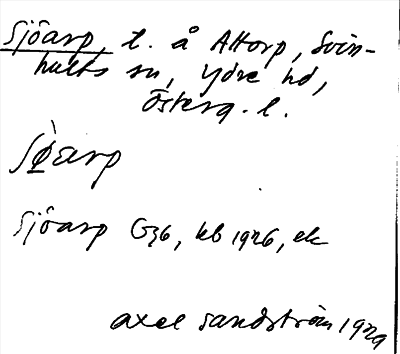 Sjöarp, t. å Attorp, Svin-
hults sn, Ydre hd,
Österg. l.
Sjöarp G36, kb 1926, ek
Axel Sandström 1929